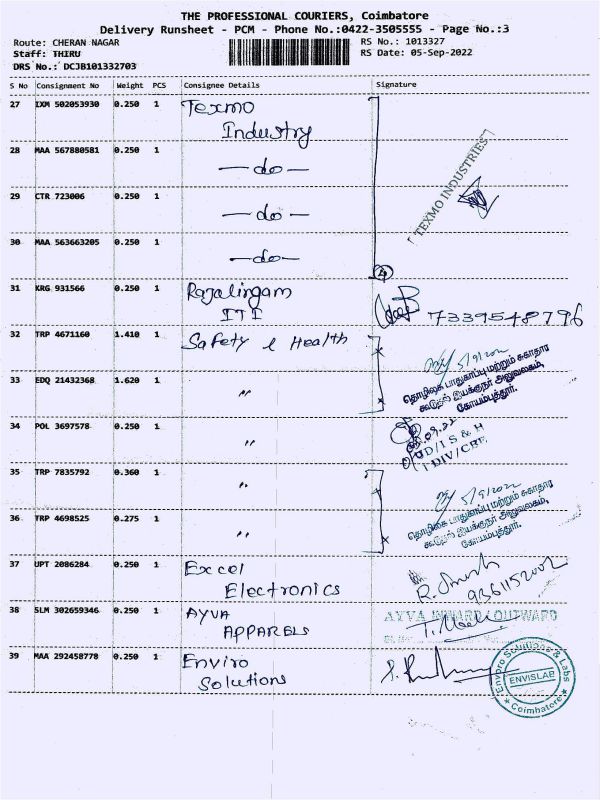 THE PROFESSIONAL COURIERS, Coimbatore
Delivery Runsheet - PCM - Phone No.:0422-3505555 - Page No.:3
Route: CHERAN NAGAR
RS No.: 1013327
Staff: THIRU
RS Date: 05-Sep-2022
DRS No.: DCJB101332703
S No Consignment No Weight PCS Consignee Details Signature
27 IXM 502053930 0.250 1 Texmo
Industry
28 MAA 567880581 0.250 1 —do—
TEXMO INDUSTRIES
29 CTR 723006 0.250 1 —do—
30 MAA 563663205 0.250 1 —do—
4
31 KRG 931566 0.250 1 Rajalingam
ITI
7339548796
32 TRP 4671160 1.410 1 Safety & Health
5/9/2022
33 EDQ 21432368 1.620 1 "
தொழிலக பாதுகாப்பு மற்றும் சுகாதார
கூடுதல் இயக்குநர் அலுவலகம்,
கோயம்புத்தூர்.
34 POL 3697578 0.250 1 "
D/I S & H
I DIV/CBE
35 TRP 7835792 0.360 1 "
5/9/2022
தொழிலக பாதுகாப்பு மற்றும் சுகாதார
கூடுதல் இயக்குநர் அலுவலகம்,
கோயம்புத்தூர்.
36 TRP 4698525 0.275 1 "
37 UPT 2086284 0.250 1 Excel
Electronics
9361152002
38 SLM 302659346 0.250 1 AYVA
APPARELS
AYVA INWARD / OUTWARD
39 MAA 292458778 0.250 1 Enviro
Solutions
Enviro Solutions & Labs
ENVISLAB
Coimbatore